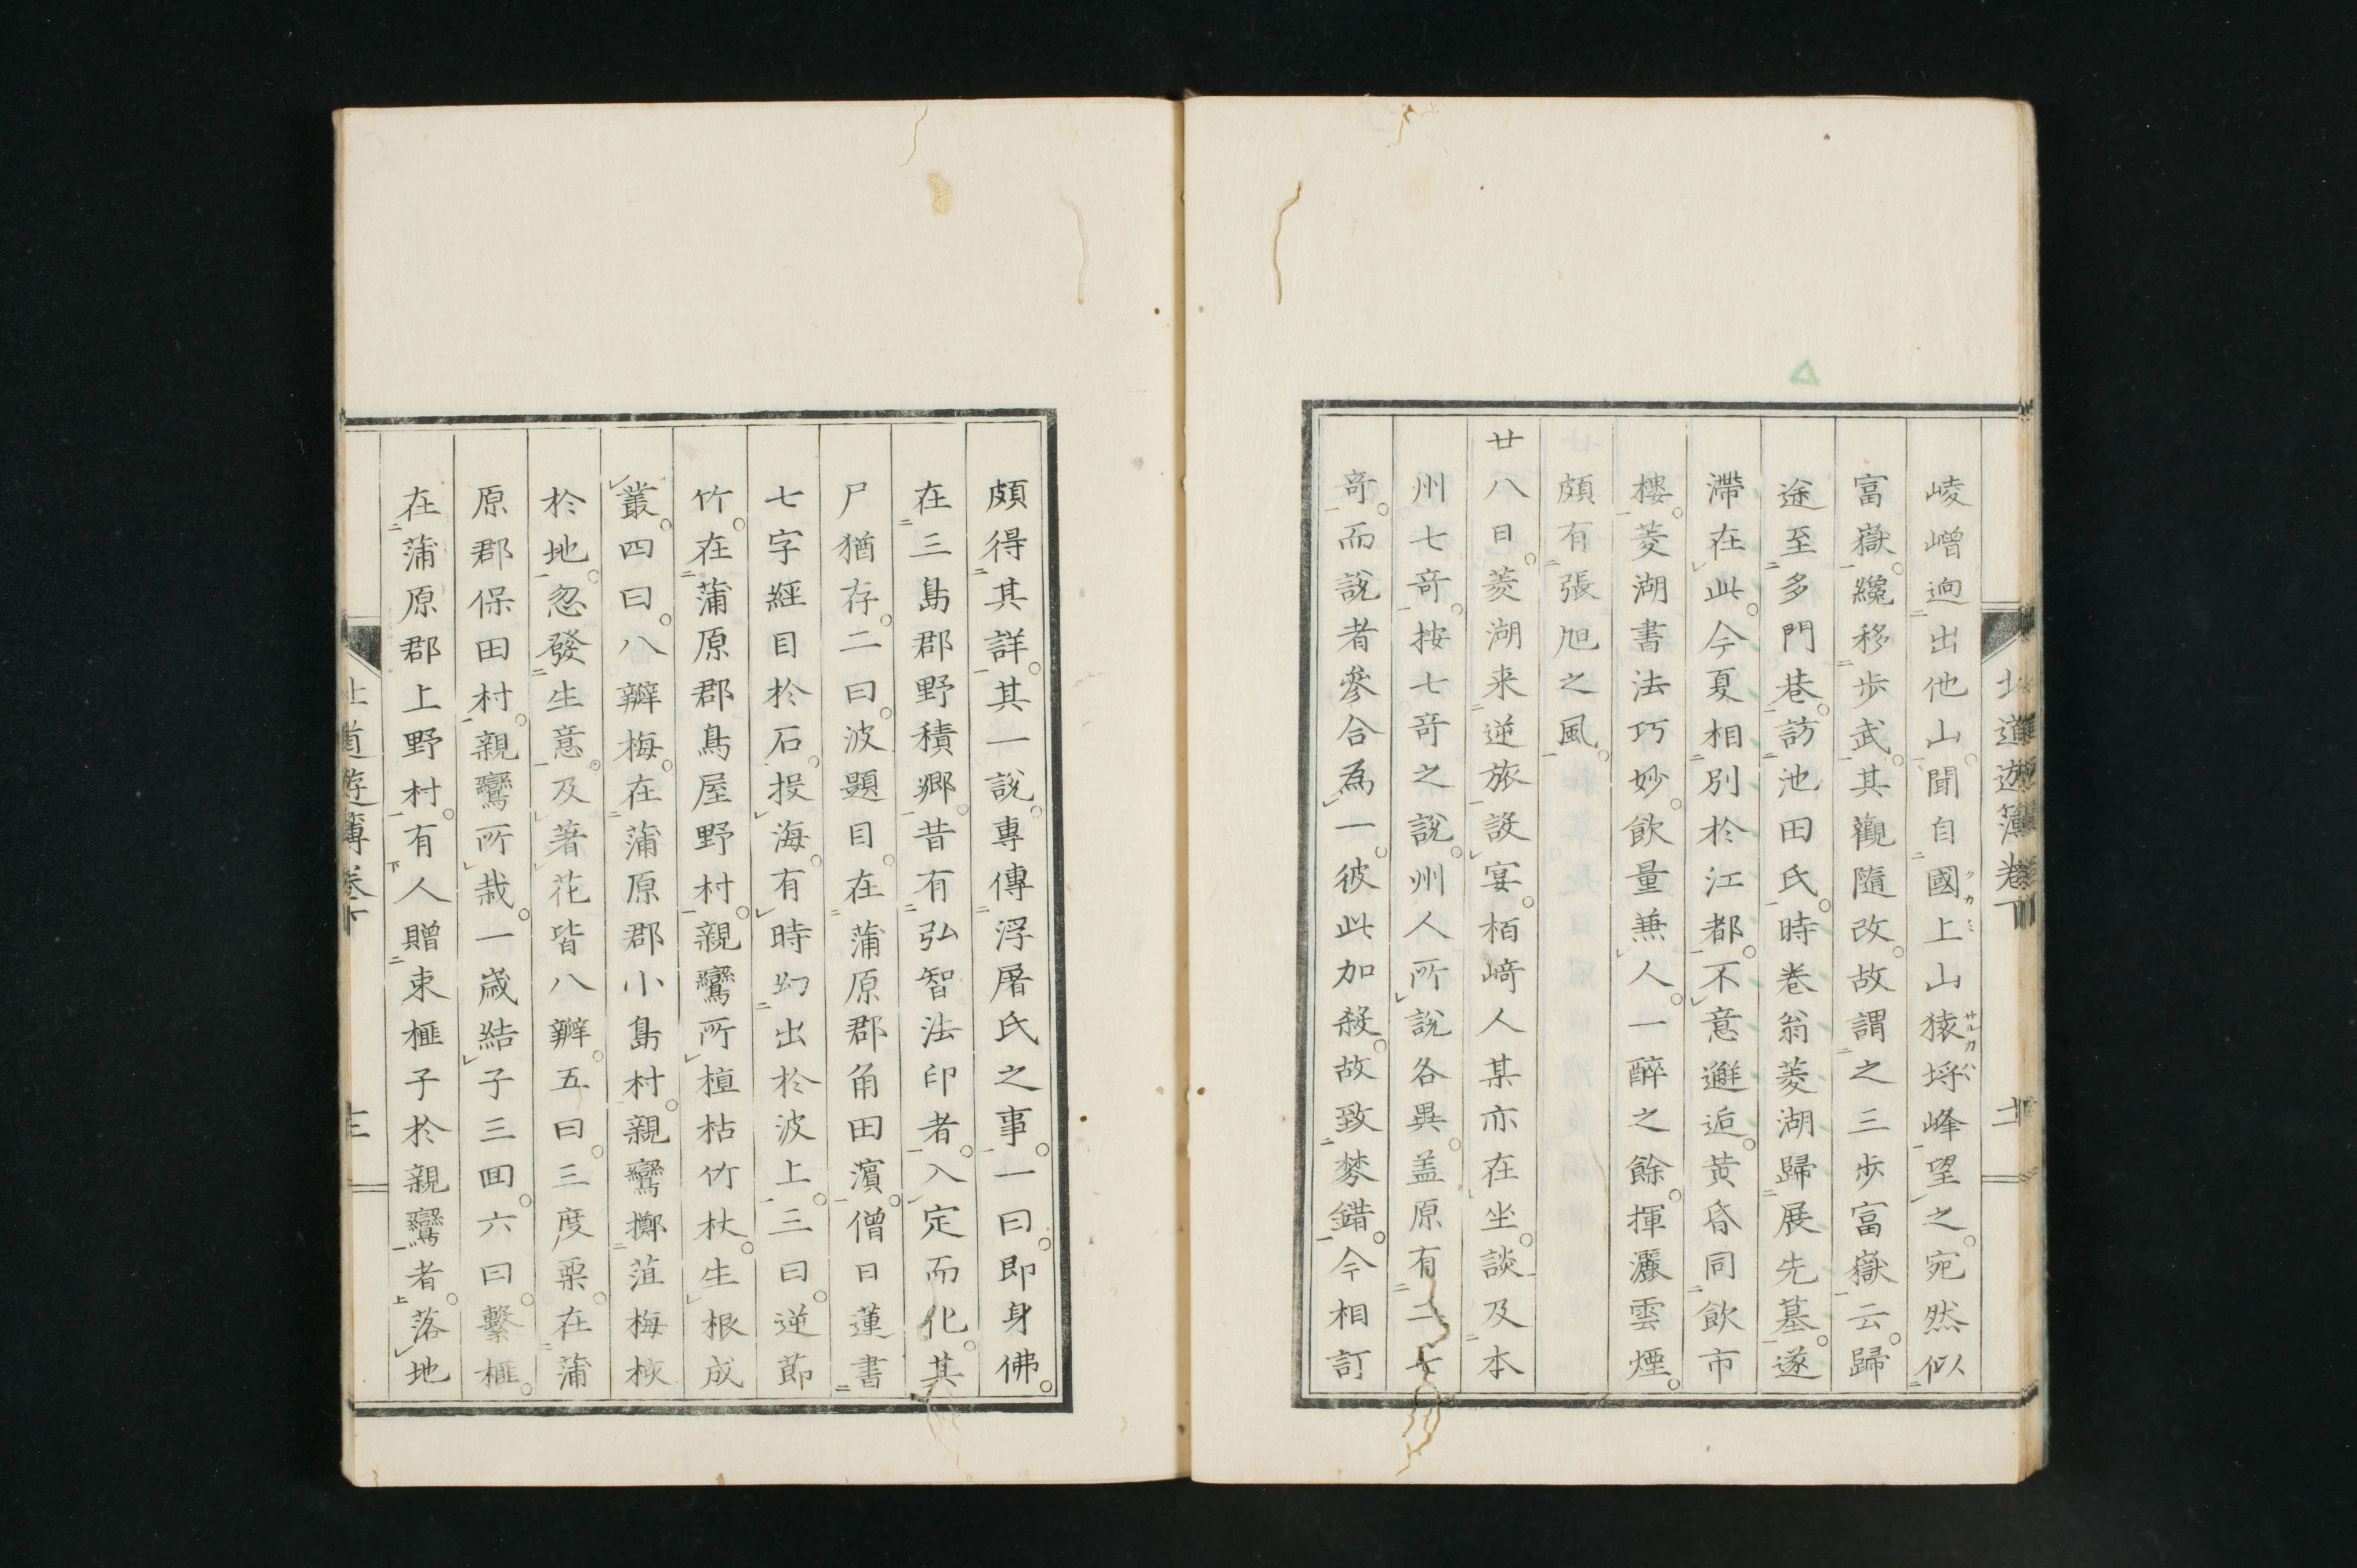 崚嶒逈出他山聞自國上山猿埓峰望之宛然似
富嶽纔移歩武其觀隨改故謂之三歩富嶽云歸
途至多門巷訪池田氏時巻翁菱湖歸展先墓遂
滯在此今夏相別於江都不意邂逅黄昏同飲市
樓菱湖書法巧妙飲量兼人一醉之餘揮灑雲煙
頗有張旭之風
廿八日菱湖来逆旅設宴栢﨑人某亦在坐談及本
州七竒按七竒之說州人所說各異盖原有二七
竒而說者參合為一彼此加殺故致棼錯今相訂
頗得其詳其一說專傳浮屠氏之事一曰即身佛
在三島郡野積郷昔有弘智法印者入定而化其
尸猶存二曰波題目在蒲原郡角田濵僧日蓮書
七字經目於石投海有時幻出於波上三曰逆節
竹在蒲原郡鳥屋野村親鸞所植枯竹杖生根成
叢四曰八瓣梅在蒲原郡小島村親鸞擲葅梅核
於地忽發生意及著花皆八瓣五曰三度栗在蒲
原郡保田村親鸞所栽一歳結子三回六曰繫榧
在蒲原郡上野村有人贈束榧子於親鸞者落地